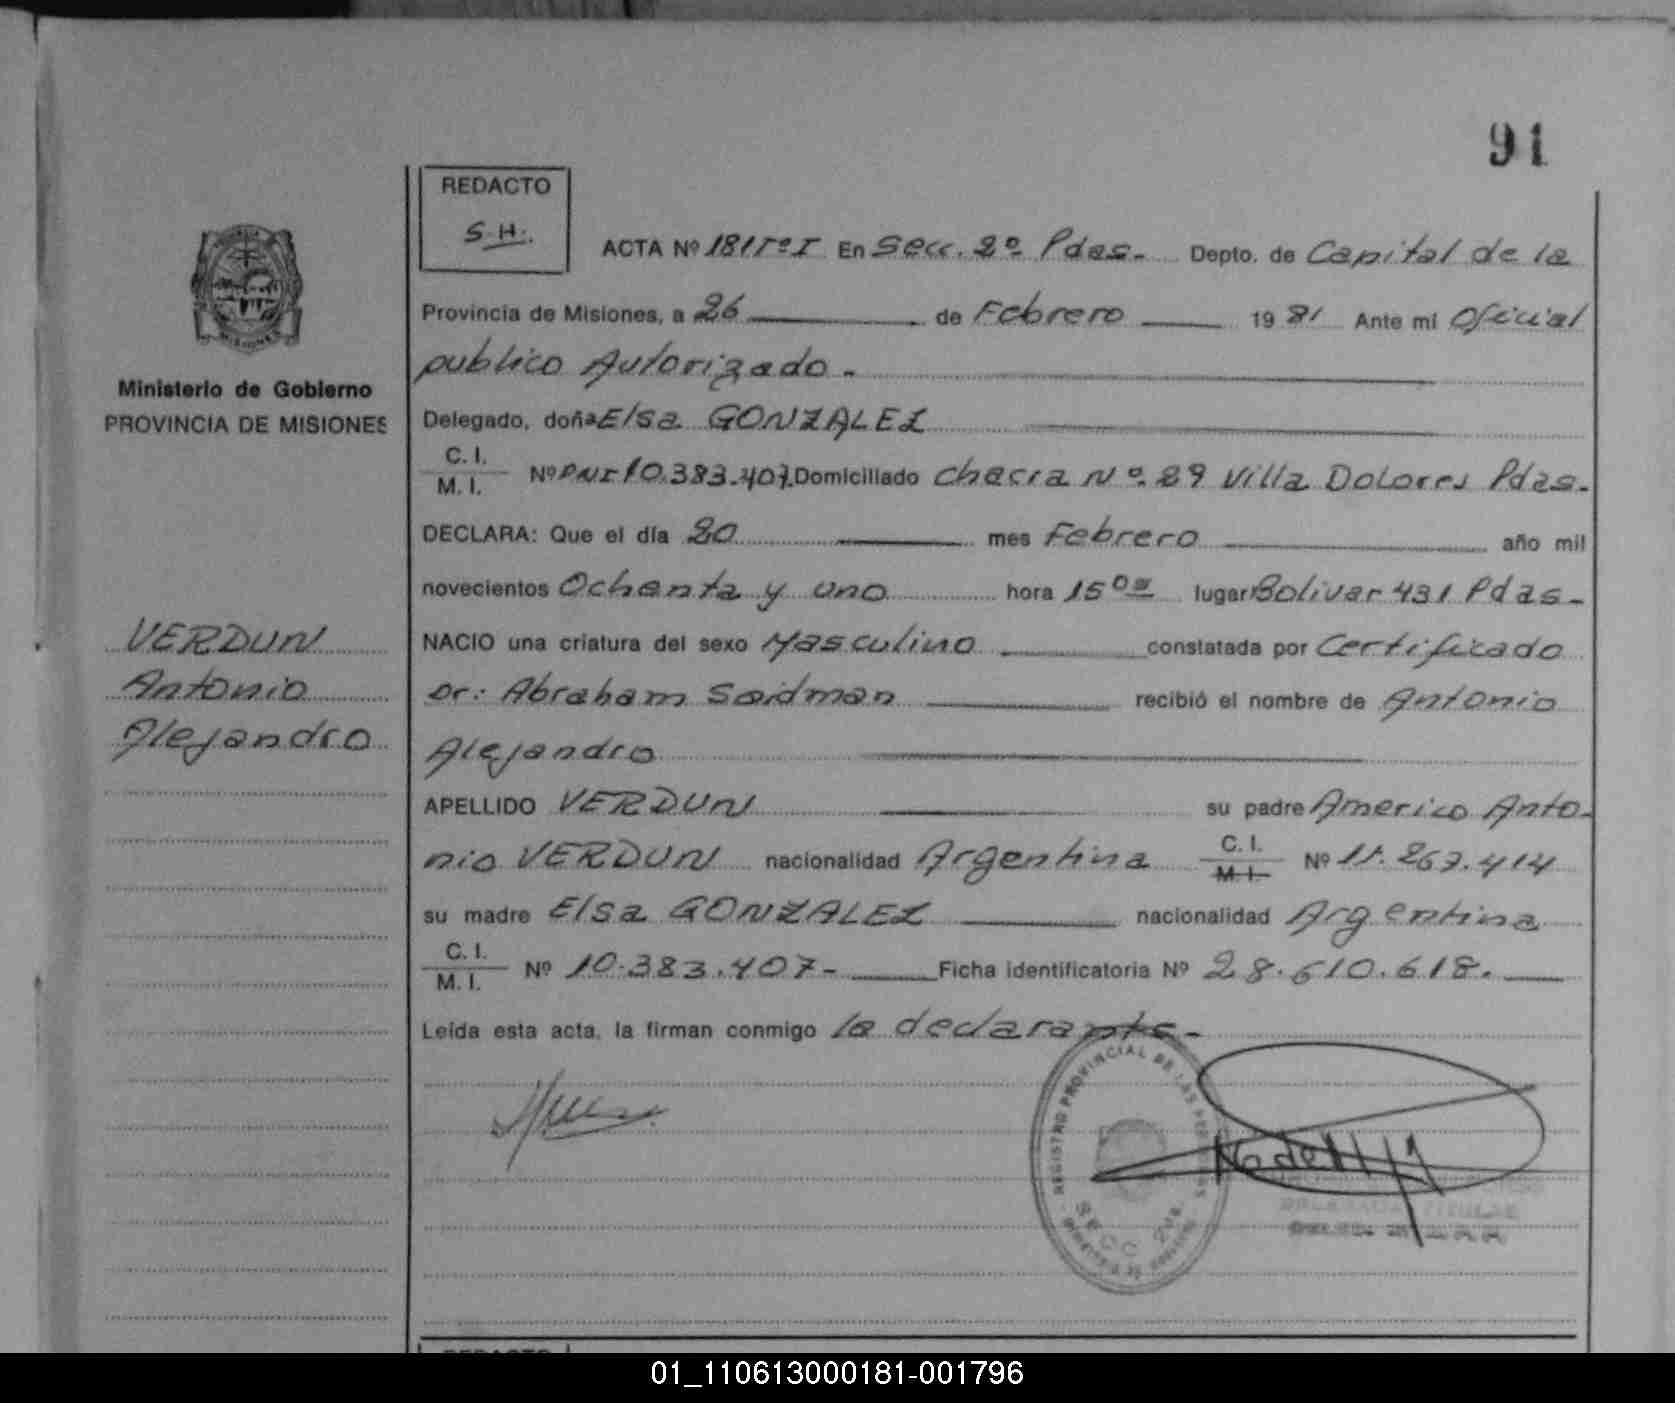 91
REDACTO
S.H.
ACTA Nº 181 Tº I En Secc. 2º Pdas.- Depto. de Capital de la
Provincia de Misiones, a 26 de Febrero 19 81 Ante mi Oficial
publico Autorizado.-
Ministerio de Gobierno
PROVINCIA DE MISIONES
Delegado, doña Elsa GONZALEZ
C. I.
M. I. Nº DNI 10.383.407. Domiciliado Chacra Nº 29 Villa Dolores Pdas.
DECLARA: Que el día 20 mes Febrero año mil
novecientos Ochenta y uno hora 15 00 lugar Bolivar 431 Pdas-
VERDUN
Antonio
Alejandro
NACIO una criatura del sexo Masculino constatada por Certificado
Dr: Abraham Saidman recibió el nombre de Antonio
Alejandro
APELLIDO VERDUN su padre Americo Anto-
nio VERDUN nacionalidad Argentina C. I. M. I. Nº 11.267.414
su madre Elsa GONZALEZ nacionalidad Argentina
C. I.
M. I. Nº 10.383.407- Ficha identificatoria Nº 28.610.618.
Leída esta acta, la firman conmigo la declarante-
REGISTRO PROVINCIAL DE LAS PERSONAS
SECC 2da.
DELEGADA TITULAR
01_110613000181-001796